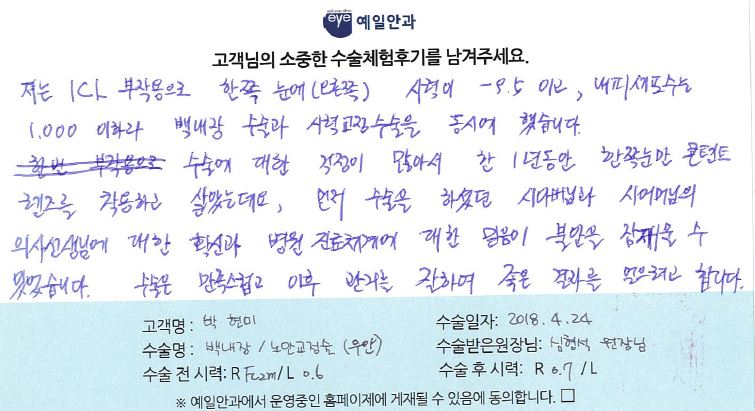 eye 예일안과
고객님의 소중한 수술체험후기를 남겨주세요.
저는 ICL 부작용으로 한쪽 눈에(오른쪽) 시력이 -9.5 이고, 내피세포수는
1,000 이하라 백내장 수술과 시력교정수술을 동시에 했습니다.
한번 부작용으로 수술에 대한 걱정이 많아서 한 1년동안 한쪽눈만 콘텐트
렌즈를 착용하고 살았는데요, 먼저 수술을 하셨던 시아버님과 시어머님의
의사선생님에 대한 확신과 병원 진료체계에 대한 믿음이 불안을 잠재울 수
있었습니다. 수술은 만족스럽고 이후 관리를 잘하여 좋은 결과를 얻으려고 합니다.
고객명 : 박현미
수술일자: 2018.4.24
수술명 : 백내장 / 노안교정술 (우안)
수술받은원장님: 심현석 원장님
수술 전 시력: R Fc2m/L 0.6
수술 후 시력: R 0.7 /L
※ 예일안과에서 운영중인 홈페이제에 게재될 수 있음에 동의합니다. □